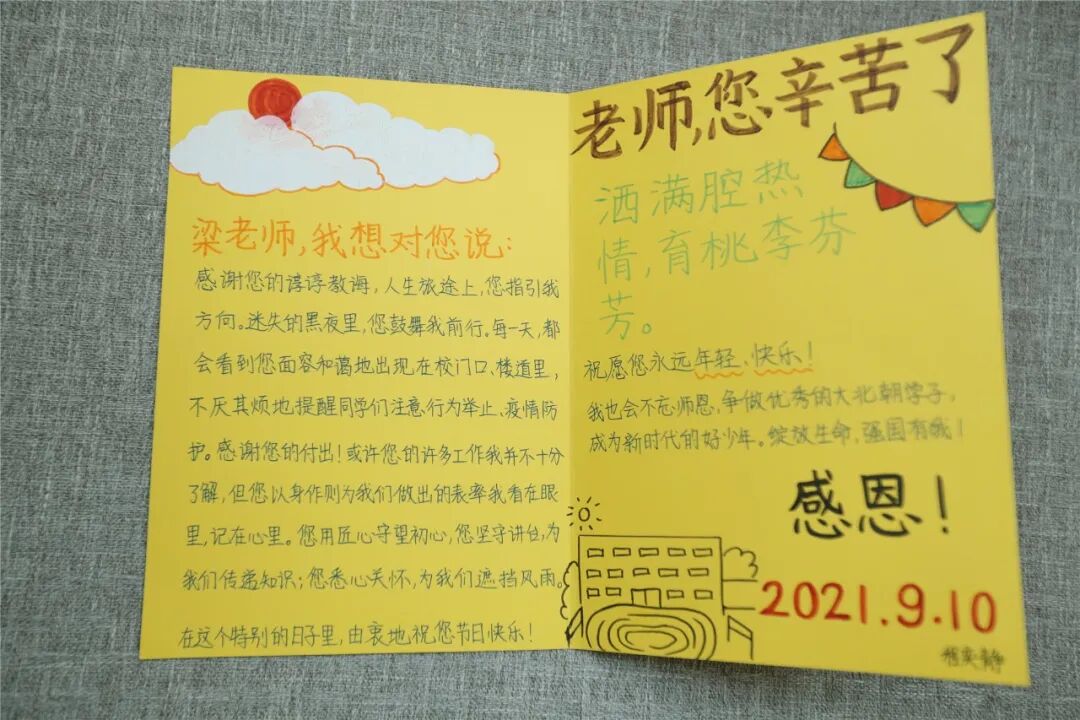 梁老师,我想对您说:
感谢您的谆谆教诲,人生旅途上,您指引我
方向。迷失的黑夜里,您鼓舞我前行。每一天,都
会看到您面容和蔼地出现在校门口、楼道里,
不厌其烦地提醒同学们注意行为举止、疫情防
护。感谢您的付出!或许您的许多工作我并不十分
了解,但您以身作则为我们做出的表率我看在眼
里,记在心里。您用匠心守望初心,您坚守讲台,为
我们传递知识;您悉心关怀,为我们遮挡风雨。
在这个特别的日子里,由衷地祝您节日快乐!
老师,您辛苦了
洒满腔热
情,育桃李芬
芳。
祝愿您永远年轻、快乐!
我也会不忘师恩,争做优秀的大北朝学子,
成为新时代的好少年。绽放生命,强国有我!
感恩!
2021.9.10